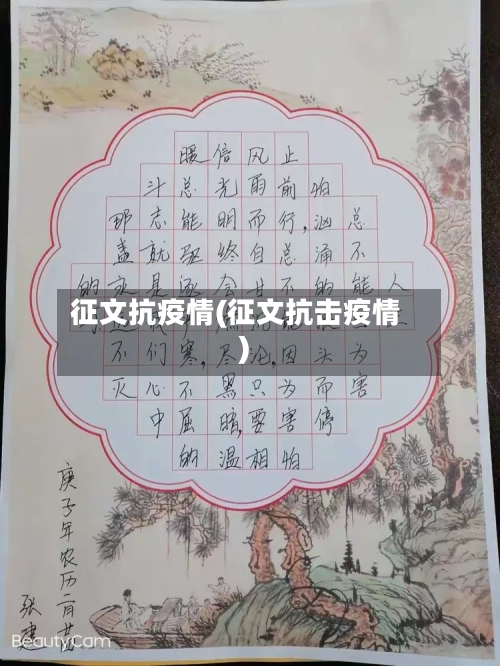 征文抗疫情(征文抗击疫情
)
人
总不能为害
怕汹涌的头而停
止前行,总不能因为害怕
风雨而自甘沦,只要相
信光明终会尽黑暗,温
暖总能驱逐寒,不屈的
斗志就是们心中
那盏不灭
的
庚子年农历二月廿
张
BeautyCam